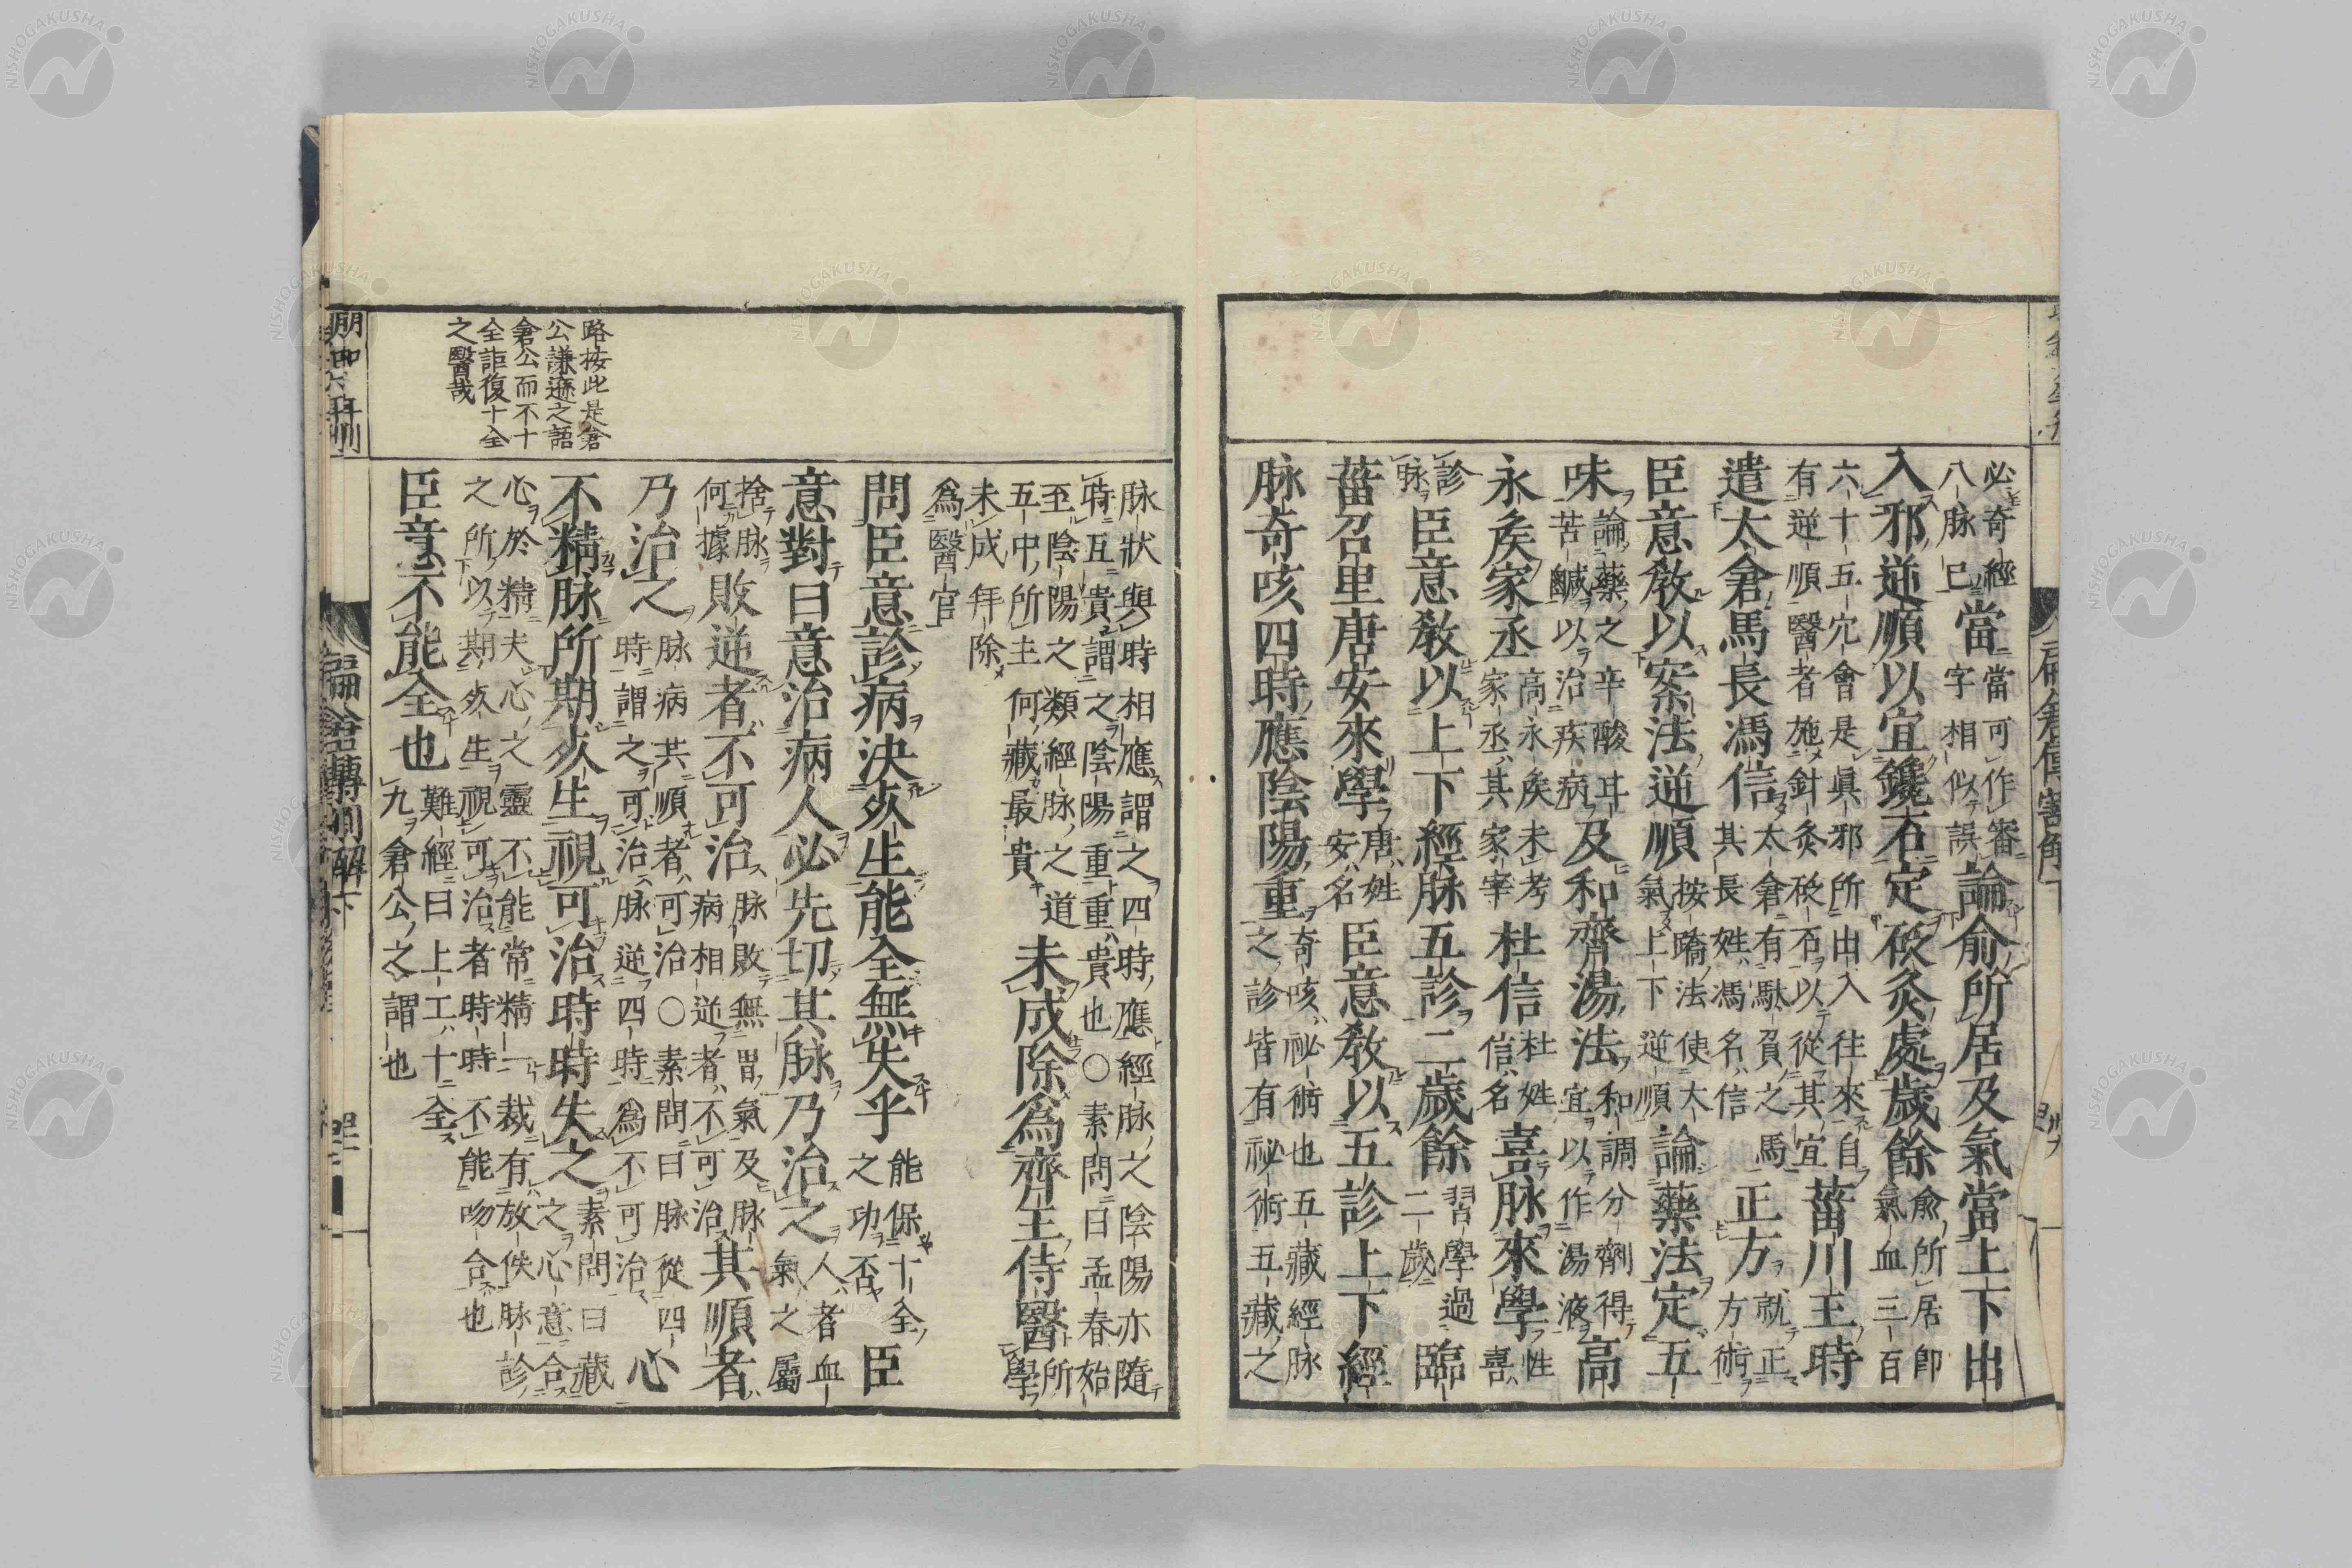 必奇經八脉已當當可作審字相似誤論俞所居及氣當上下出
入邪逆順以宜鑱石定砭灸處歲餘俞所居卽氣血三百
六十五穴會是眞邪所由入往來自有逆順醫者施針灸砭石以從其宜菑川王時
遣太倉馬長馮信太倉有馱負之馬其長姓馮名信正方就正方術
臣意敎以案法逆順按蹻法使大氣上下逆順論藥法定五
味論藥之辛酸甘苦鹹以治疾病及和齊湯法和調分劑得宜以作湯液高
永矦家丞高永矦未考家丞其家宰杜信杜姓信名喜脉來學性喜
診脉臣意敎以上下經脉五診二歲餘習學過二歲臨
菑召里唐安來學唐姓安名臣意敎以五診上下經
脉奇咳四時應陰陽重奇咳祕術也五藏經脉之診皆有祕術五藏之
脉狀與時相應謂之四時應經脉之陰陽亦隨時互貴謂之陰陽重重貴也○素問曰孟春始
至陰陽之類經脉之道五中所主何藏最貴未成除爲齊王侍醫所學
未成拜除爲醫官
問臣意診病決死生能全無失乎能保十全之功否臣
意對曰意治病人必先切其脉乃治之人者血氣之屬
捨脉何據敗逆者不可治脉敗無胃氣及脉病相逆者不可治其順者
乃治之脉病共順者可治○素問曰脉從四時謂之可治脉逆四時爲不可治心
不精脉所期死生視可治時時失之素問曰藏之心意合
心於精夫心之靈不能常精一裁有放佚脉診之所以期死生視可治者時時不能吻合也
臣意不能全也難經曰上工十全九倉公之謂也
路按此是倉
公謙遜之語
倉公而不十
全詎復十全
之醫哉
扁倉傳割解下
NISHOGAKUSHA